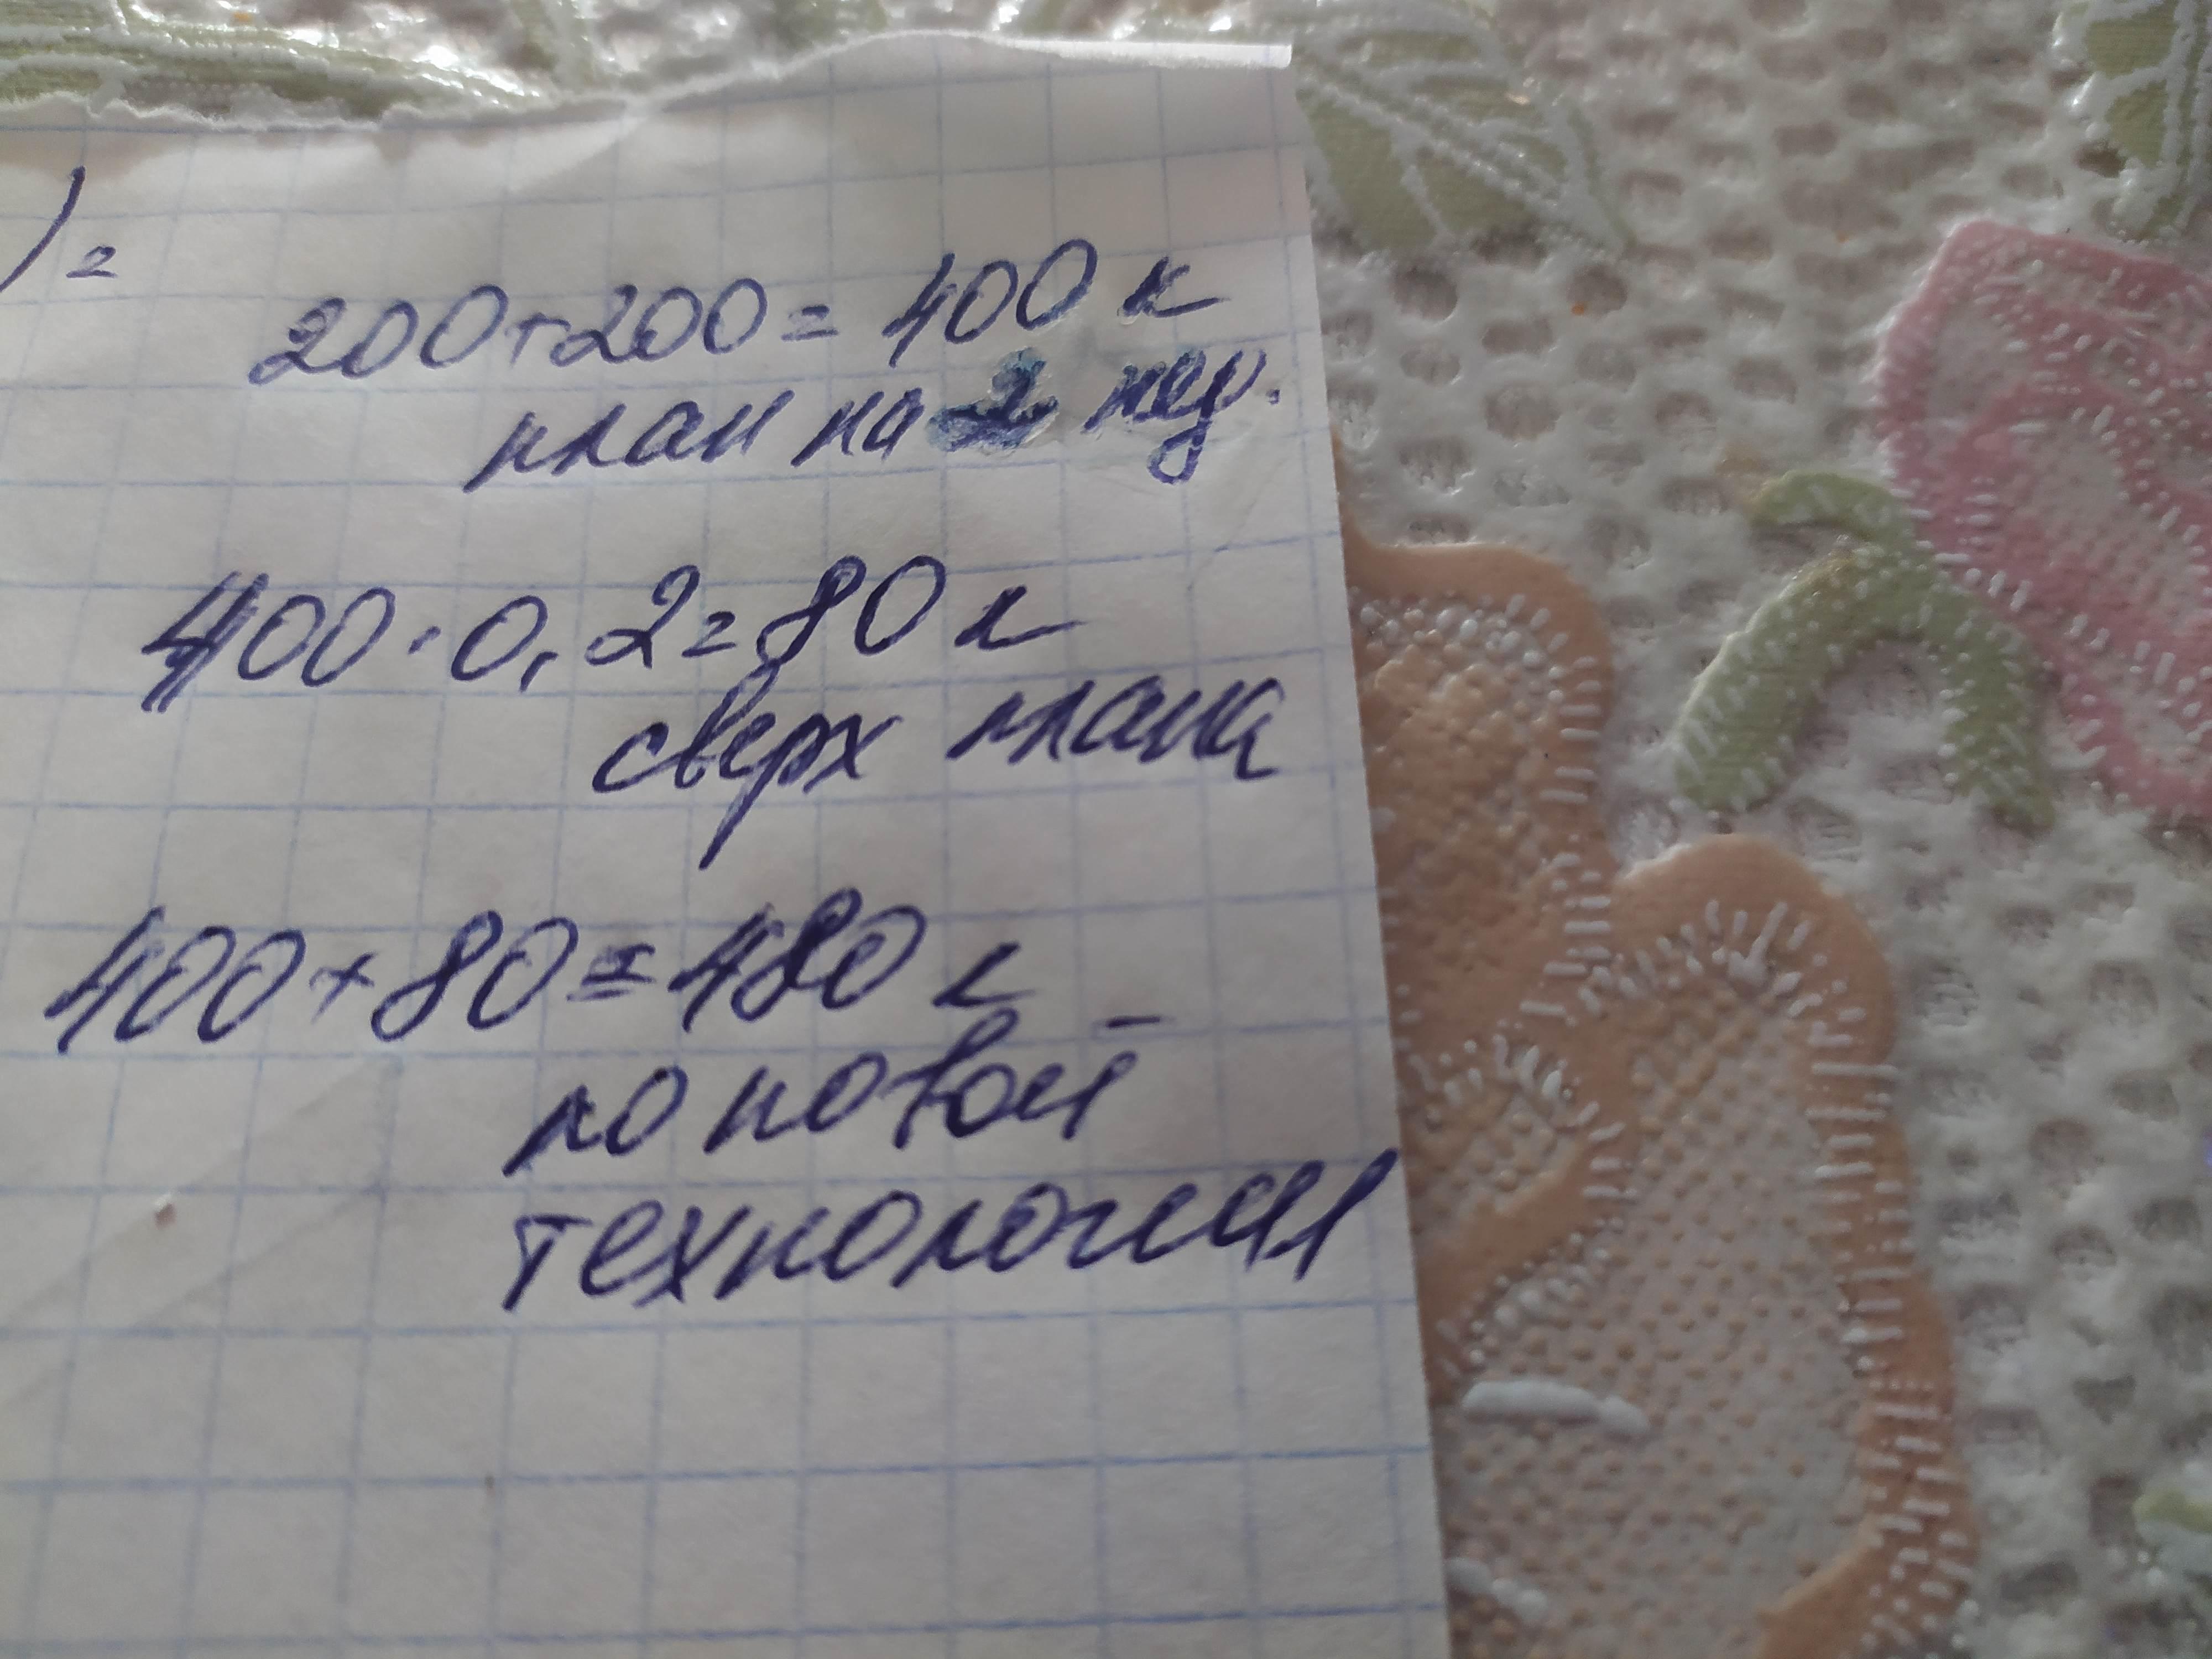 ) =
200+200=400 к
план на 2 нед.
400·0,2=80 к
сверх плана
400+80=480 к
по новой
технологии